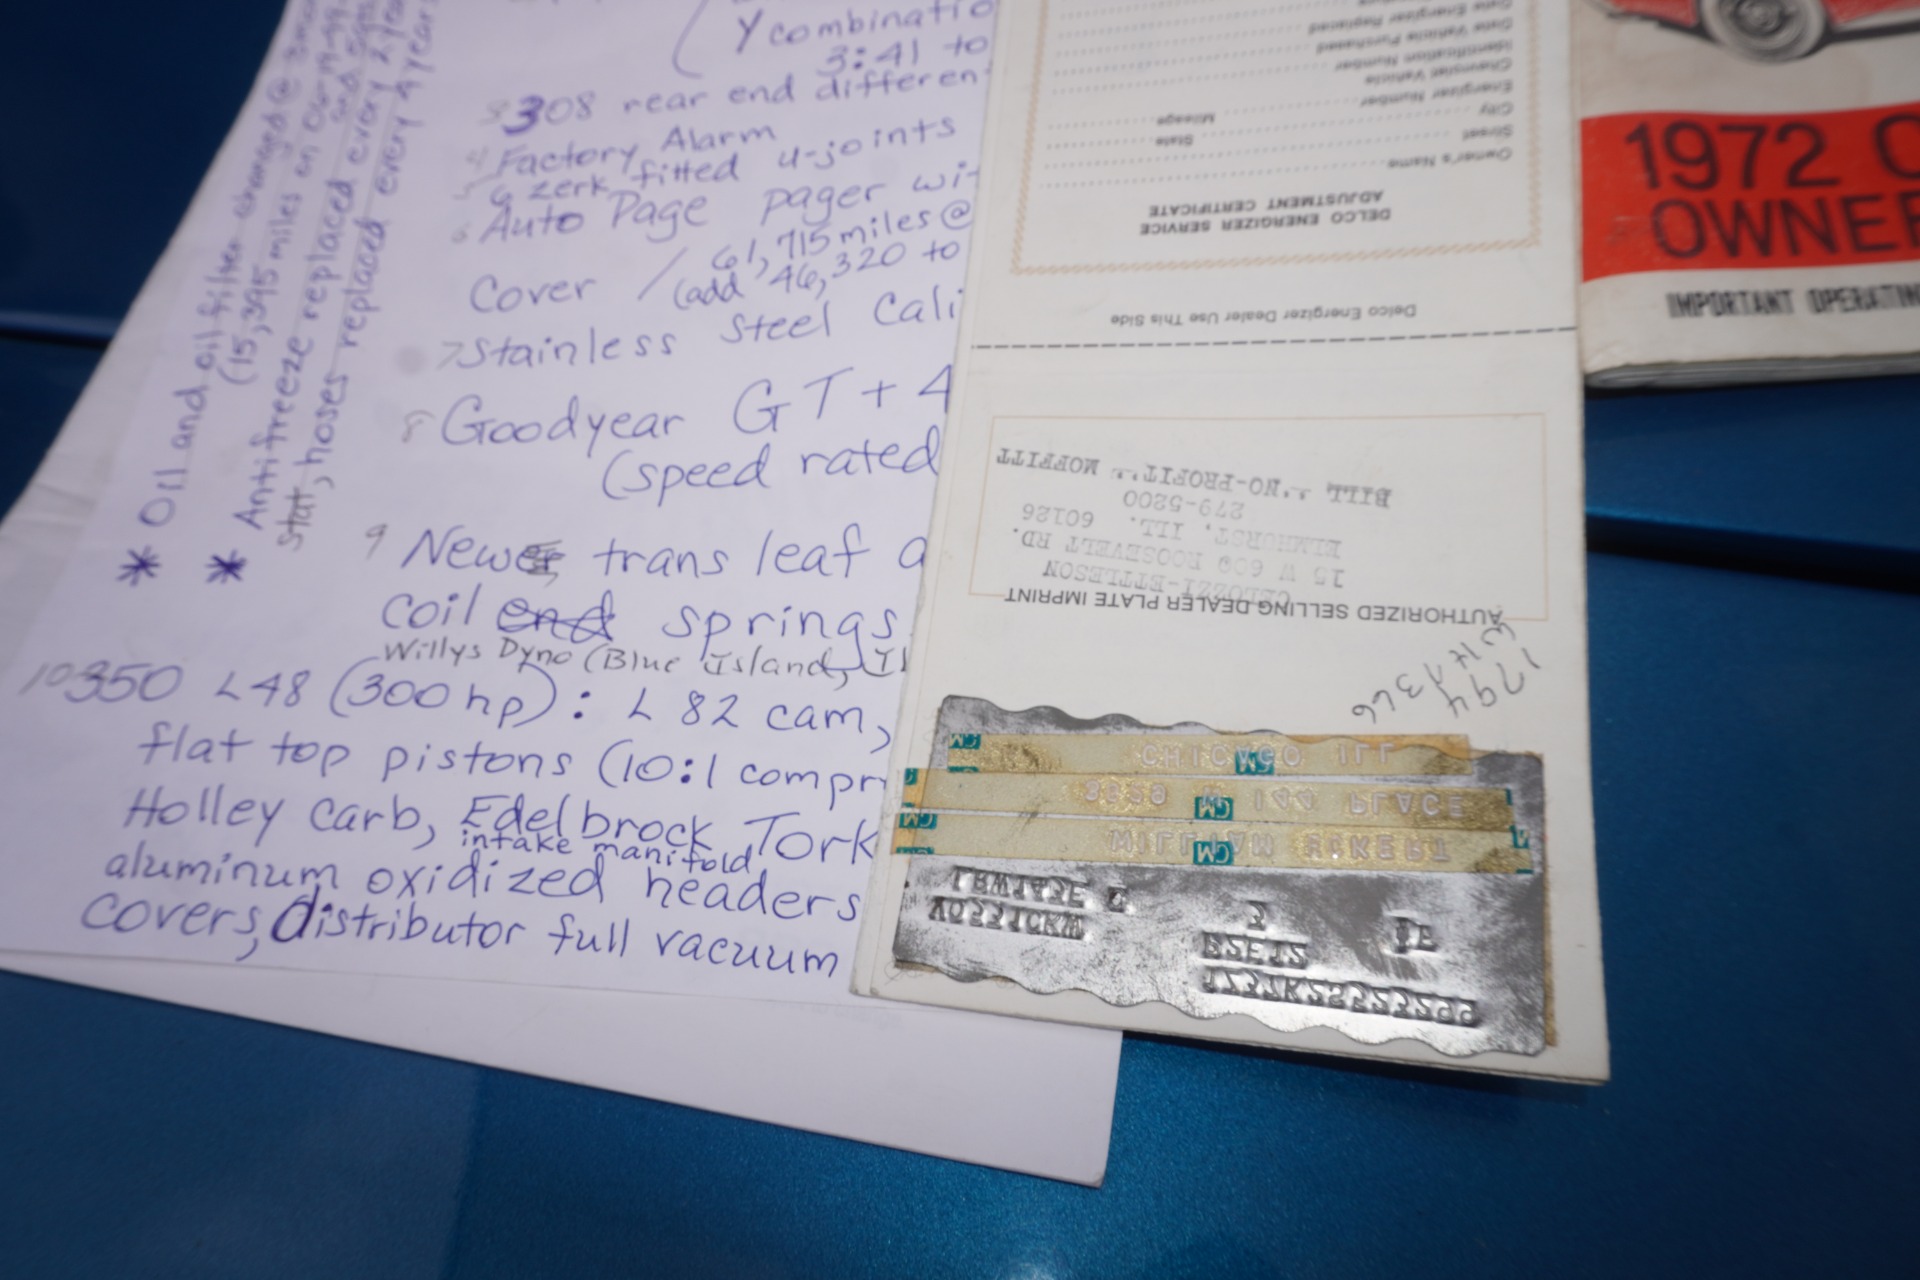 Ycombinatio
3:41 to
3 308 rear end differen
4 Factory Alarm
5 6 zerk fitted u-joints
6 Auto Page pager wi
Cover / 61,715 miles @
(add 46,320 to
7 Stainless Steel Cali
8 Goodyear GT+4
(speed rated
9 Newer trans leaf a
coil end springs
Willys Dyno (Blue Island, Il
10 350 L48 (300 hp): L82 cam,
flat top pistons (10:1 compr
Holley carb, Edelbrock Tork
intake manifold
aluminum oxidized headers
covers, distributor full vacuum
* Oil and oil filter changed @
(15,395 miles on
* Antifreeze replaced every 2 yea
stat, hoses replaced every 4 years
1972 C
OWNER
IMPORTANT OPERATIN
Delco Energizer Dealer Use This Side
DELCO ENERGIZER SERVICE
ADJUSTMENT CERTIFICATE
Owner's Name
Street
City State
Energizer Number Mileage
Chevrolet Vehicle
Identification Number
Date Vehicle Purchased
Date Energizer Replaced
AUTHORIZED SELLING DEALER PLATE IMPRINT
CELOZZI-ETTLESON
15 W 609 ROOSEVELT RD.
ELMHURST, ILL. 60126
279-5200
BILL "NO-PROFIT" MOFFITT
WILLIAM ECKERT
144 PLACE
CHICAGO ILL
GM
GM
GM